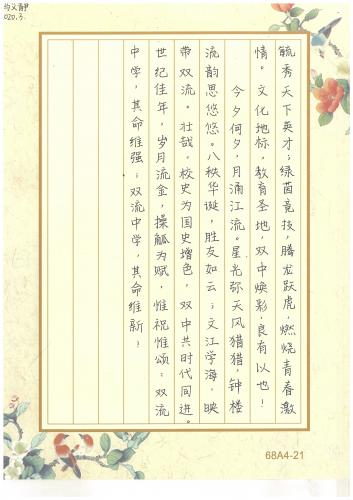 毓秀天下英才；绿茵竞技，腾龙跃虎，燃烧青春激
情。文化地标，教育圣地，双中焕彩，良有以也！
今夕何夕，月涌江流。星光弥天风猎猎，钟楼
流韵思悠悠。八秩华诞，胜友如云；文江学海，映
带双流。壮哉，校史为国史增色，双中共时代同进。
世纪佳年，岁月流金，操觚为赋，惟祝惟颂：双流
中学，其命维强；双流中学，其命维新！
020.3.
68A4-21